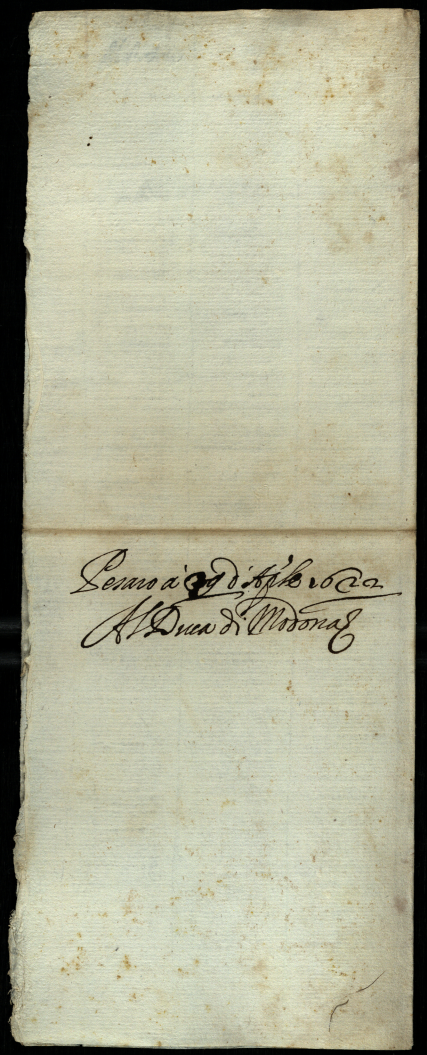 Pesaro à 29 d'Ap.le 1622
Al Duca di Modona